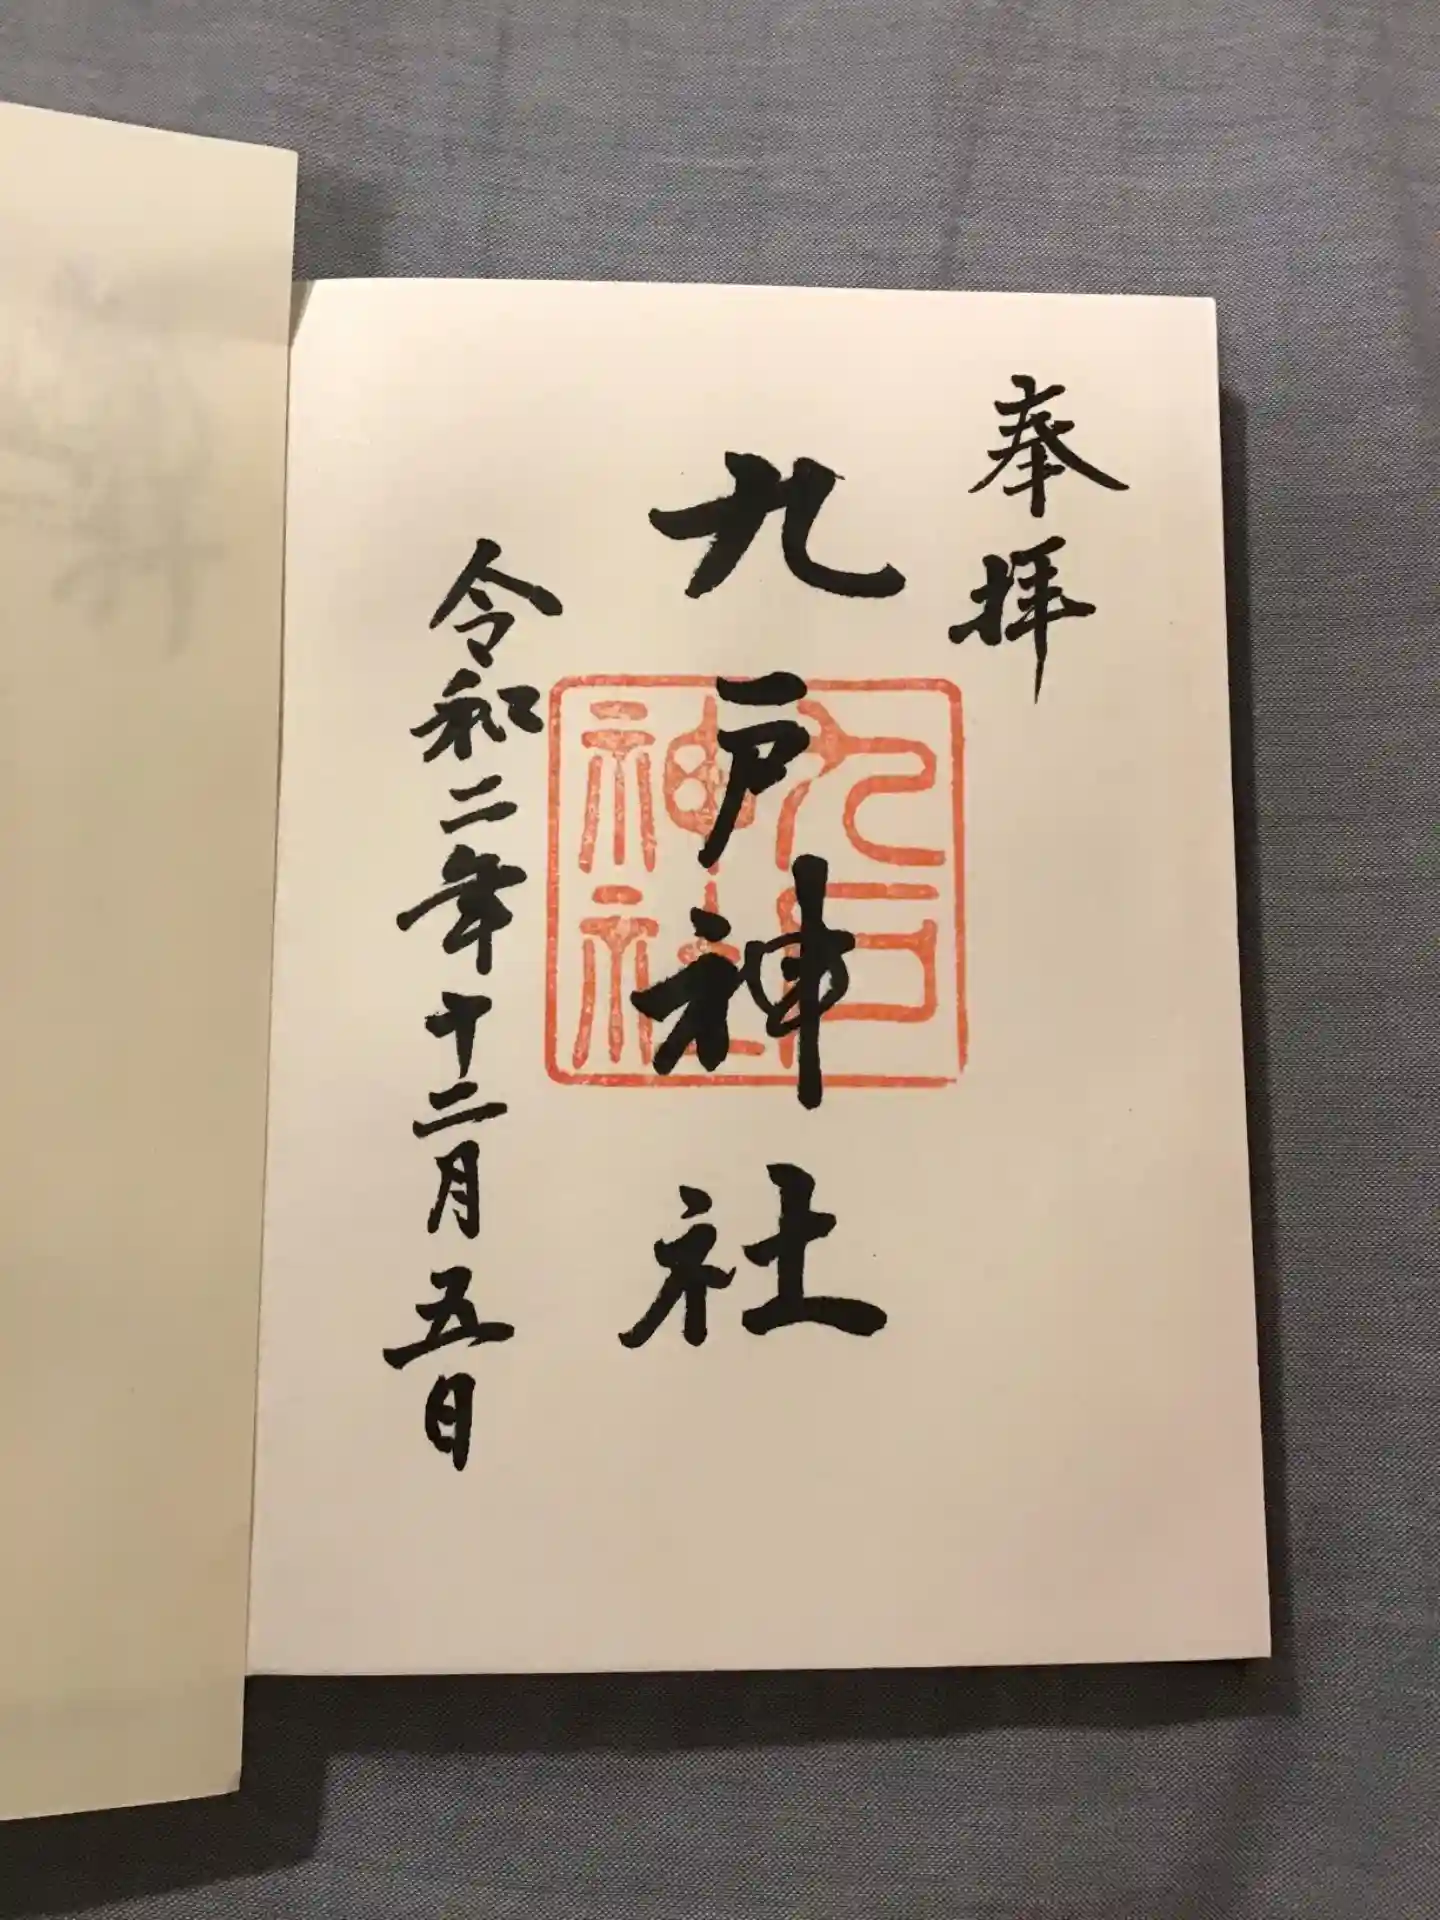 奉拝
九戸神社
九戸神社
令和二年十二月五日